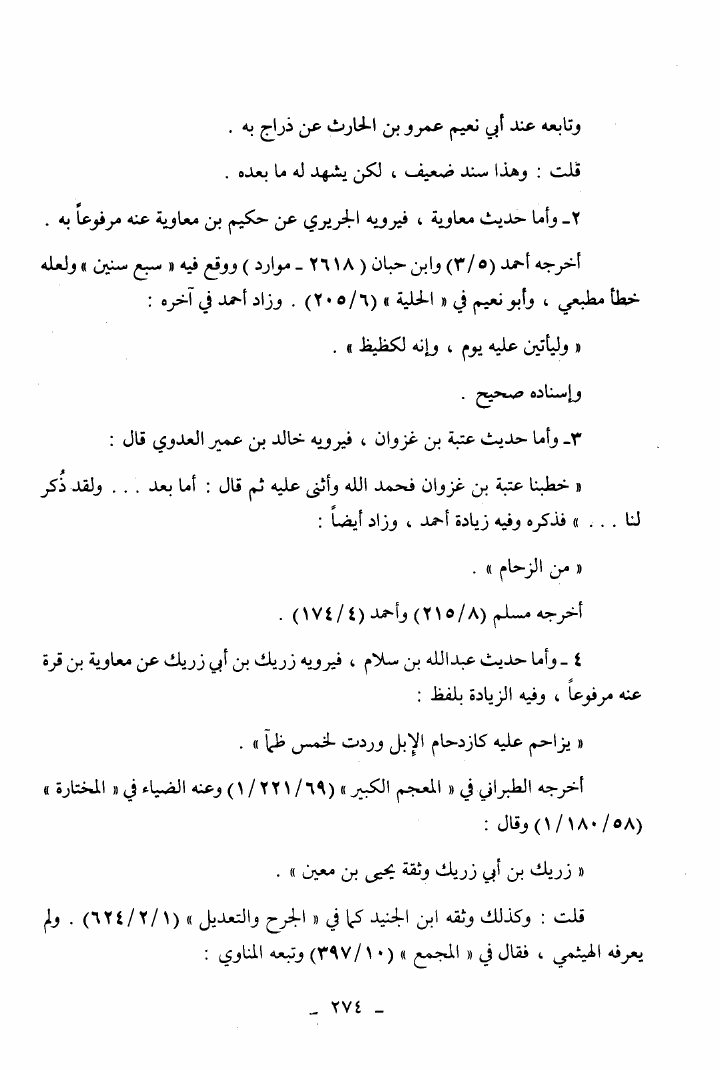 وتابعه عند أبي نعيم عمرو بن الحارث عن ذراج به .
قلت : وهذا سند ضعيف ، لكن يشهد له ما بعده .
٢ـ وأما حديث معاوية ، فيرويه الجريري عن حكيم بن معاوية عنه مرفوعاً به .
أخرجه أحمد (٣/٥) وابن حبان ( ٢٦١٨ ـ موارد ) ووقع فيه « سبع سنين » ولعله
خطأ مطبعي ، وأبو نعيم في « الحلية » (٢٠٥/٦) . وزاد أحمد في آخره :
« وليأتين عليه يوم ، وإنه لكظيظ » .
وإسناده صحيح .
٣ـ وأما حديث عتبة بن غزوان ، فيرويه خالد بن عمير العدوي قال :
« خطبنا عتبة بن غزوان فحمد الله وأثنى عليه ثم قال : أما بعد ... ولقد ذُكر
لنا ... » فذكره وفيه زيادة أحمد ، وزاد أيضاً :
« من الزحام » .
أخرجه مسلم (٢١٥/٨) وأحمد (١٧٤/٤) .
٤ ـ وأما حديث عبدالله بن سلام ، فيرويه زريك بن أبي زريك عن معاوية بن قرة
عنه مرفوعاً ، وفيه الزيادة بلفظ :
« يزاحم عليه كازدحام الإبل وردت لخمس ظمآ » .
أخرجه الطبراني في « المعجم الكبير » (١/٢٢١/٦٩) وعنه الضياء في « المختارة »
(١/١٨٠/٥٨) وقال :
« زريك بن أبي زريك وثقة يحيى بن معين » .
قلت : وكذلك وثقه ابن الجنيد كما في « الجرح والتعديل » (٦٢٤/٢/١) . ولم
يعرفه الهيثمي ، فقال في « المجمع » (٣٩٧/١٠) وتبعه المناوي :
ـ ٢٧٤ ـ